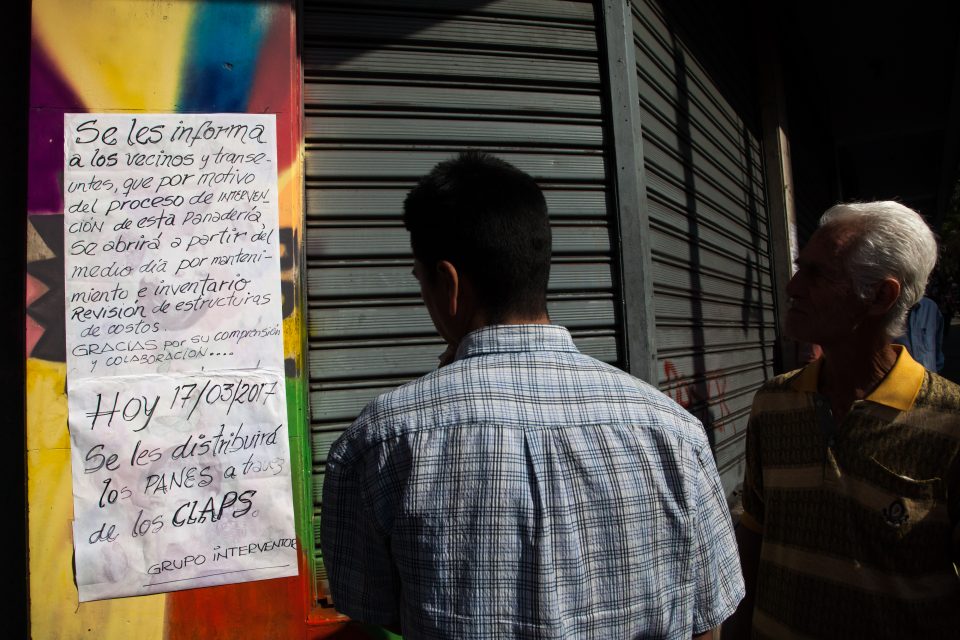 Se les informa
a los vecinos y transe-
untes, que por motivo
del proceso de INTERVEN-
CIÓN de esta Panadería
se abrirá a partir del
medio día por manteni-
miento e inventario
Revisión de estructuras
de costos..
GRACIAS por su comprensión
y COLABORACIÓN....
Hoy 17/03/2017
Se les distribuirá
los PANES a travs
de los CLAPS.
GRUPO INTERVENTOR